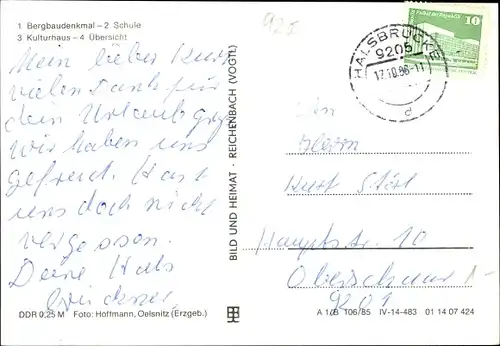 1 Bergbaudenkmal – 2 Schule
3 Kulturhaus – 4 Übersicht
92
Mein lieber Kurt
vielen Dank für
dein Urlaubsgruß
wir haben uns
gefreut. Hast
uns doch nicht
vergessen.
Deine Hals
brückner
DDR 0,25 M Foto: Hoffmann, Oelsnitz (Erzgeb.)
BILD UND HEIMAT · REICHENBACH (VOGTL)
HALSBRÜCKE
9205
17.10.86-11
d
10
An
Herrn
Kurt
Hauptstr. 10
9201
A 1/B 106/85 IV-14-483 01 14 07 424